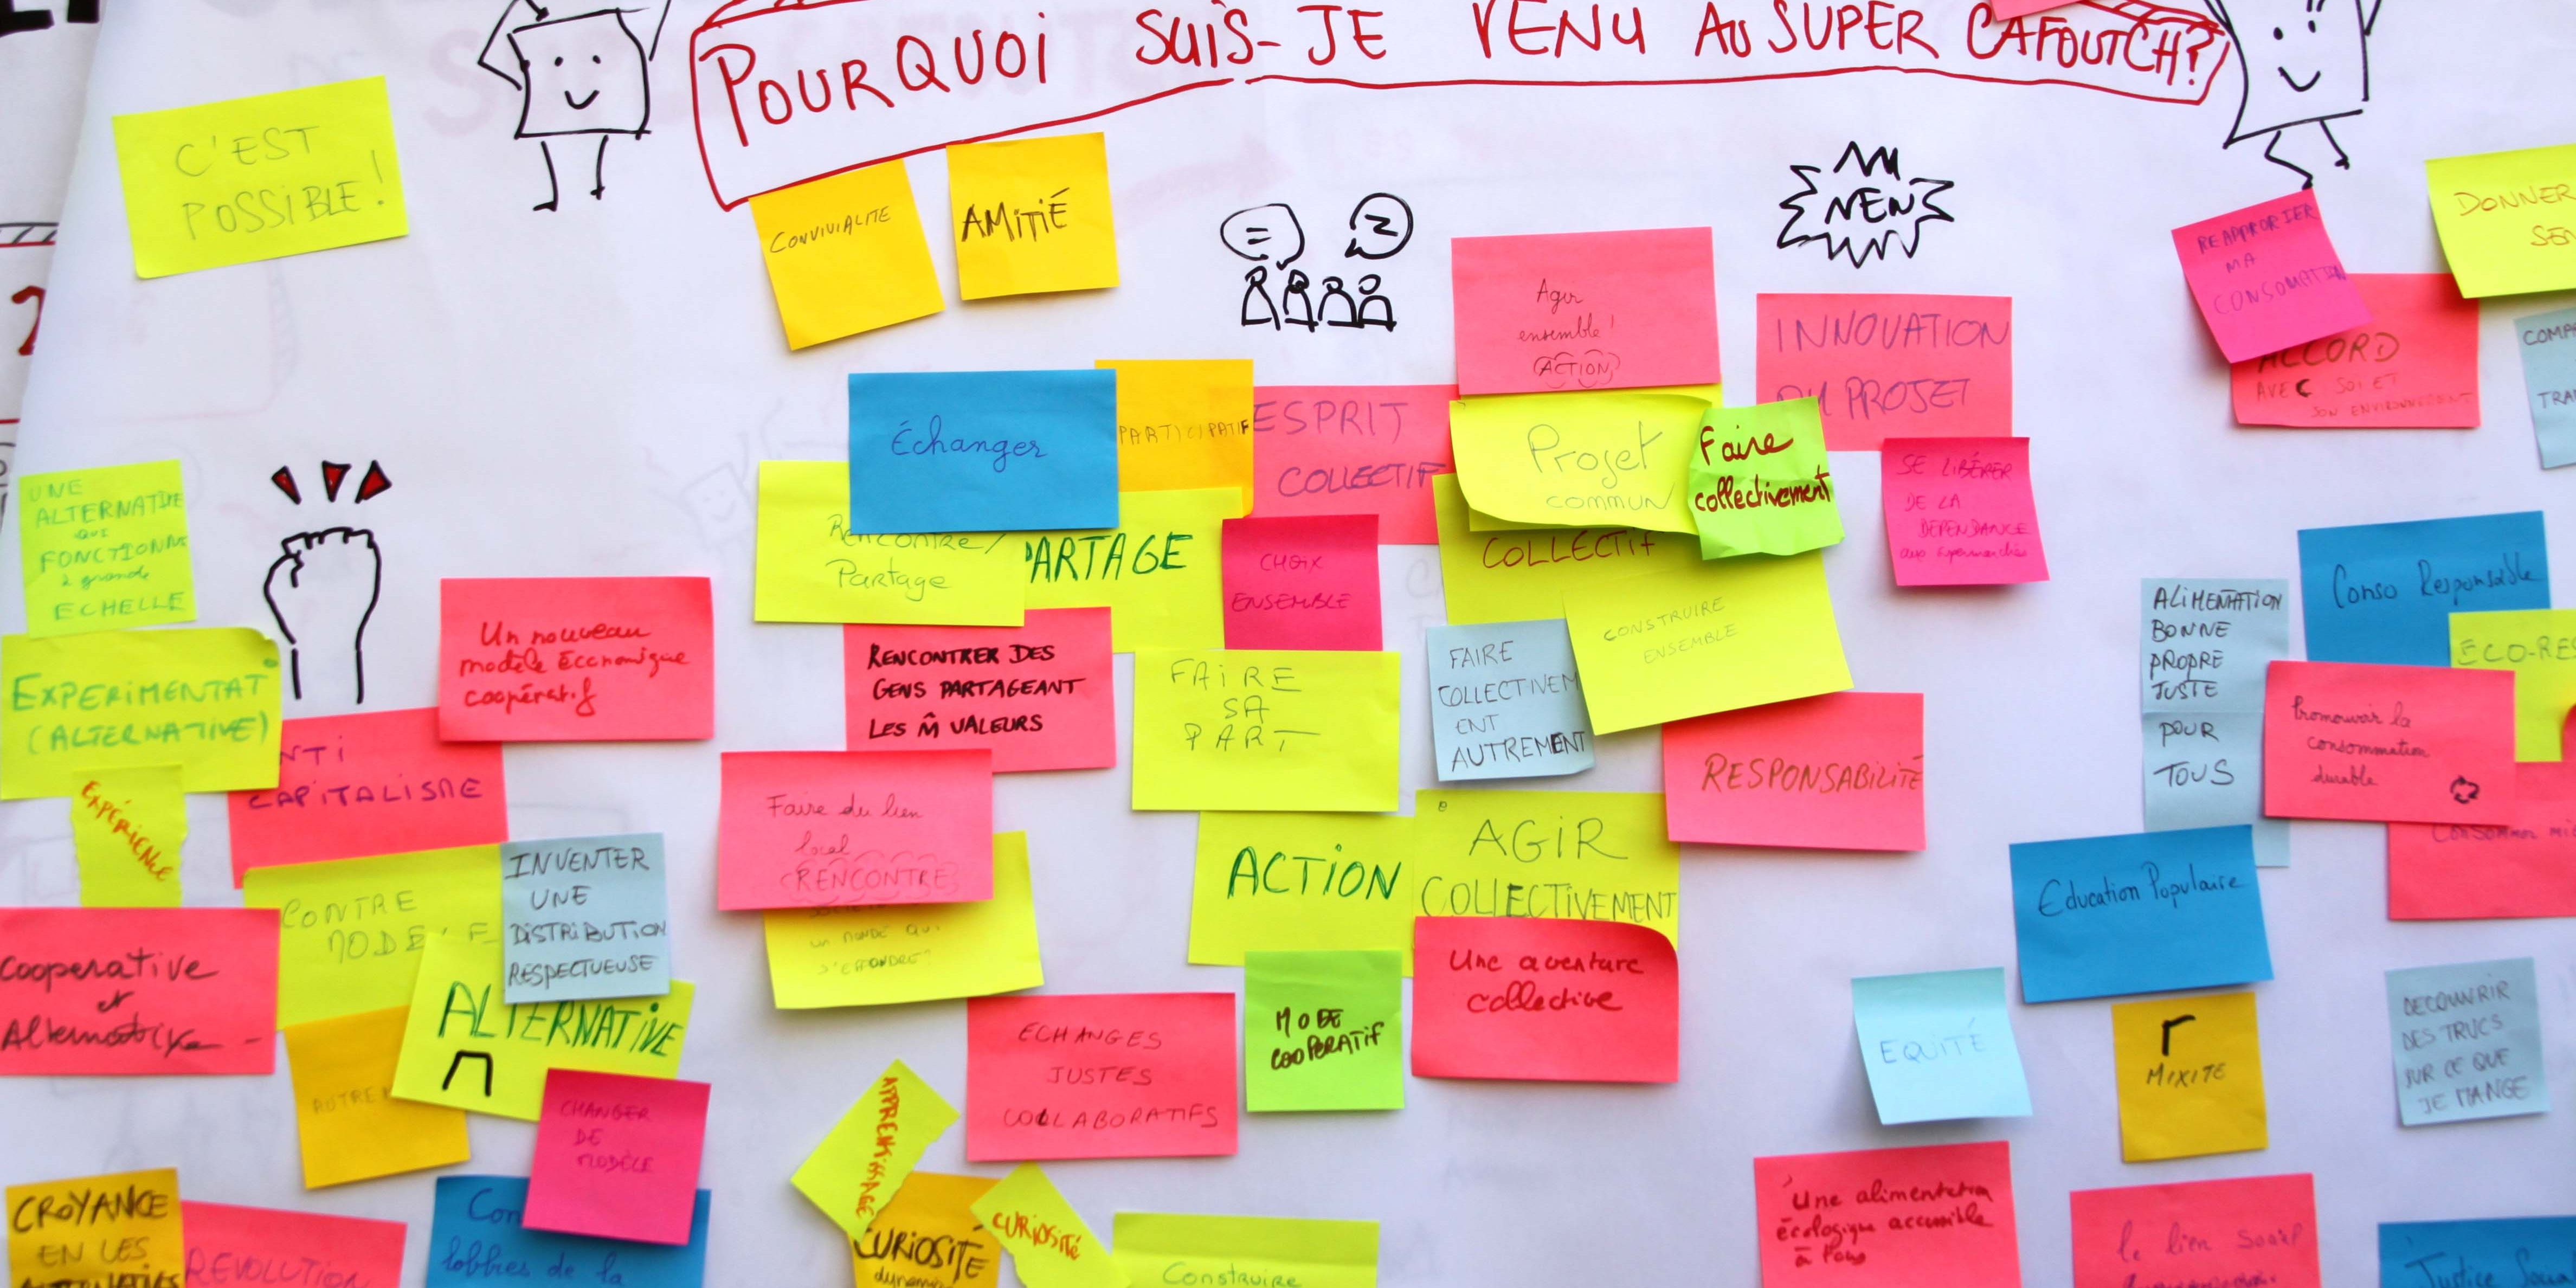 POURQUOI SUIS-JE VENU AU SUPER CAFOUTCH?
C'EST
POSSIBLE!
CONVIVIALITE
AMITIÉ
NEW
Agir
ensemble!
ACTION
INNOVATION
DU PROJET
REAPPROPRIER
MA
CONSOMATION
DONNER
ACCORD
AVEC SOI ET
SON ENVIRONNEMENT
TRA
Échanger
PARTICIPATIF
ESPRIT
COLLECTIF
Projet
commun
Faire
collectivement
SE LIBÉRER
DE LA
DEPENDANCE
aux supermarchés
UNE
ALTERNATIVE
QUI
FONCTIONNE
à grande
ECHELLE
Rencontre/
Partage
PARTAGE
CHOIX
ENSEMBLE
COLLECTIF
CONSTRUIRE
ENSEMBLE
ALIMENTATION
BONNE
PROPRE
JUSTE
POUR
TOUS
Conso Responsable
ECO-RES
EXPERIMENTAT
(ALTERNATIVE)
Un nouveau
modèle économique
coopératif
RENCONTRER DES
GENS PARTAGEANT
LES M̂ VALEURS
FAIRE
SA
PART
FAIRE
COLLECTIVEM
ENT
AUTREMENT
RESPONSABILITÉ
Promouvoir la
consommation
durable
Consommer mi
NTI
CAPITALISME
EXPÉRIENCE
Faire du lien
local
(RENCONTRE)
un monde qui
s'effondre?
ACTION
AGIR
COLLECTIVEMENT
Education Populaire
CONTRE
MODE
INVENTER
UNE
DISTRIBUTION
RESPECTUEUSE
Cooperative
et
Alternative
ALTERNATIVE
AUTRE
CHANGER
DE
MODÈLE
ECHANGES
JUSTES
COLLABORATIFS
MODE
COOPERATIF
Une aventure
collective
EQUITÉ
MIXITE
DECOUVRIR
DES TRUCS
SUR CE QUE
JE MANGE
APPRENTISSAGE
CROYANCE
EN LES
REVOLUTION
Con
lobbies de la
CURIOSITE
CURIOSITÉ
Construire
Une alimentation
écologique accessible
à tous
le lien social
Justice